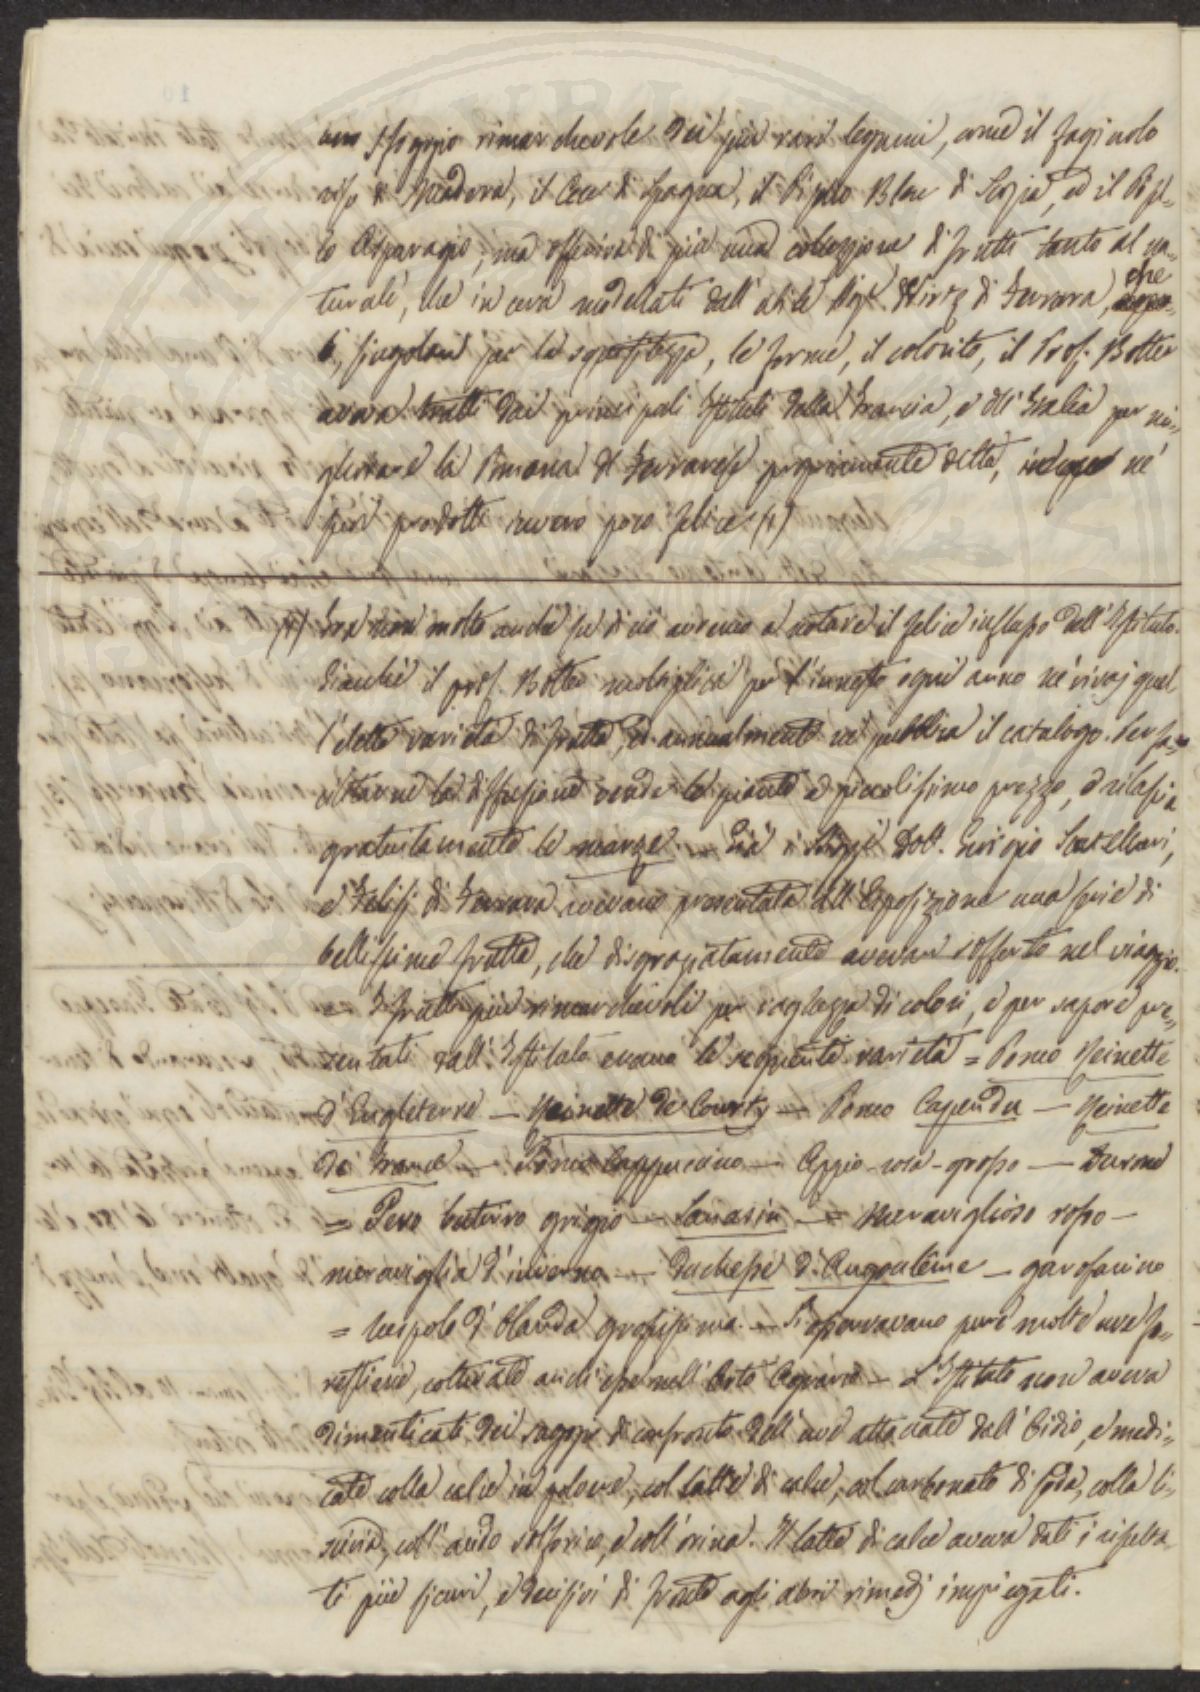 un saggio rimarchevole dei più rari legumi, come il fagiuolo
riso di Madera, il Cece di Spagna, il Pisello Bleu di Scozia, ed il Pisel-
lo Asparagio; ma offeriva di più una collezzione di frutti tanto al na-
turale, che in cera modellati dall'abile Sigr. di Ferrara, che
singolari per la squisitezza, le forme, il colorito, il Prof. Botter
aveva tratti dai principali Istituti della Francia, e dll'Italia per mi-
gliorare la Pomona del Ferrarese propriamente detta, ne'
suoi prodotti invero poco felice (1)
(1) Fra non molto anche su di ciò avremo a notare il felice influsso dell'Istituto.
dianché il prof. Botter moltiplica per l'innesto ogni anno ne' vivaj quel-
l'elette varietà di frutta, ed annualmente ne pubblica il catalogo. Per fa-
cilitarne la diffusione vende le piante a piccolissimo prezzo, e rilascia
gratuitamente le marze. — Già i Sigg.i Dott. Giorgio Scatellari,
e Felisi di Ferrara avevano presentata all'Esposizione una serie di
bellissime frutta, che disgraziatamente avevan sofferto nel viaggio.
= I frutti più rimarchevoli per vaghezza di colori, e per sapore pre-
sentati dall'Istituto erano le seguenti varietà = Pomo Reinette
d'Engleterre — Reinette de Courty — Pomo Capendu — Reinette
de France — Pomo Cappuccino — Appio-rosa-grosso — Durone
= Pero butirro grigio — Sarasin — = Meraviglioso rosso —
meraviglia d'inverno — duchesse d'Angoulême — garofanino
= Nespole d'Olanda grossissima. — Si osservavano pure molte uve fo-
restiere, coltivate anch'esse nell'Orto Agrario — L'Istituto non aveva
dimenticati dei saggi di confronto dell'uve attaccate dall'Oidio, e medi-
cate colla calce in polvere, col latte di calce, col carbonato di soda, colla li-
scivia, coll'acido solforico, e coll'orina. Il latte di calce aveva dati i risulta-
ti più sicuri, e decisivi di fronte agli altri rimedj impiegati.